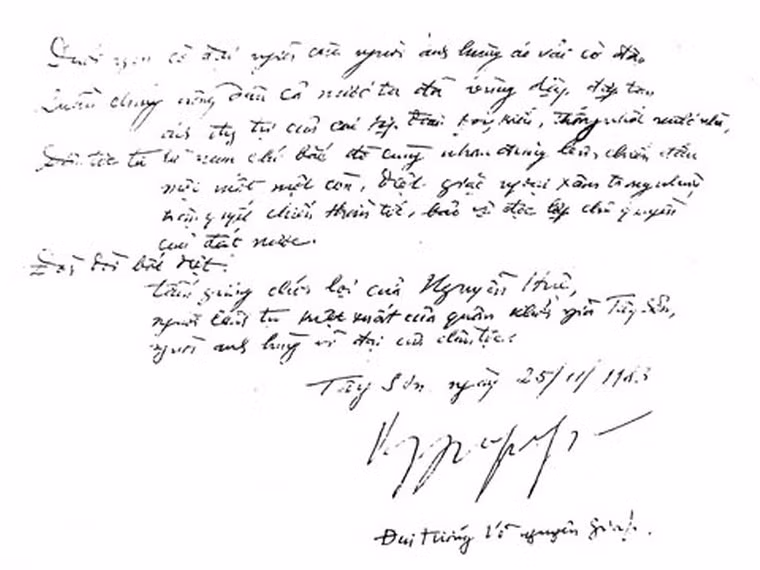 Dưới ngọn cờ đại nghĩa của người anh hùng áo vải cờ đào
Quần chúng nông dân cả nước ta đã vùng dậy, đập tan
ách thống trị của các tập đoàn phong kiến, thống nhất nước nhà,
Dân tộc ta từ nam chí bắc đã cùng nhau đứng lên chiến đấu
một mất một còn, diệt giặc ngoại xâm trong những
trận quyết chiến thần tốc, bảo vệ độc lập chủ quyền
của đất nước.
Đời đời bất diệt
tấm gương chói lọi của Nguyễn Huệ,
người lãnh tụ kiệt xuất của quân khởi nghĩa Tây Sơn,
người anh hùng vĩ đại của dân tộc.
Tây Sơn ngày 25/11/1983
Đại tướng Võ nguyên Giáp.